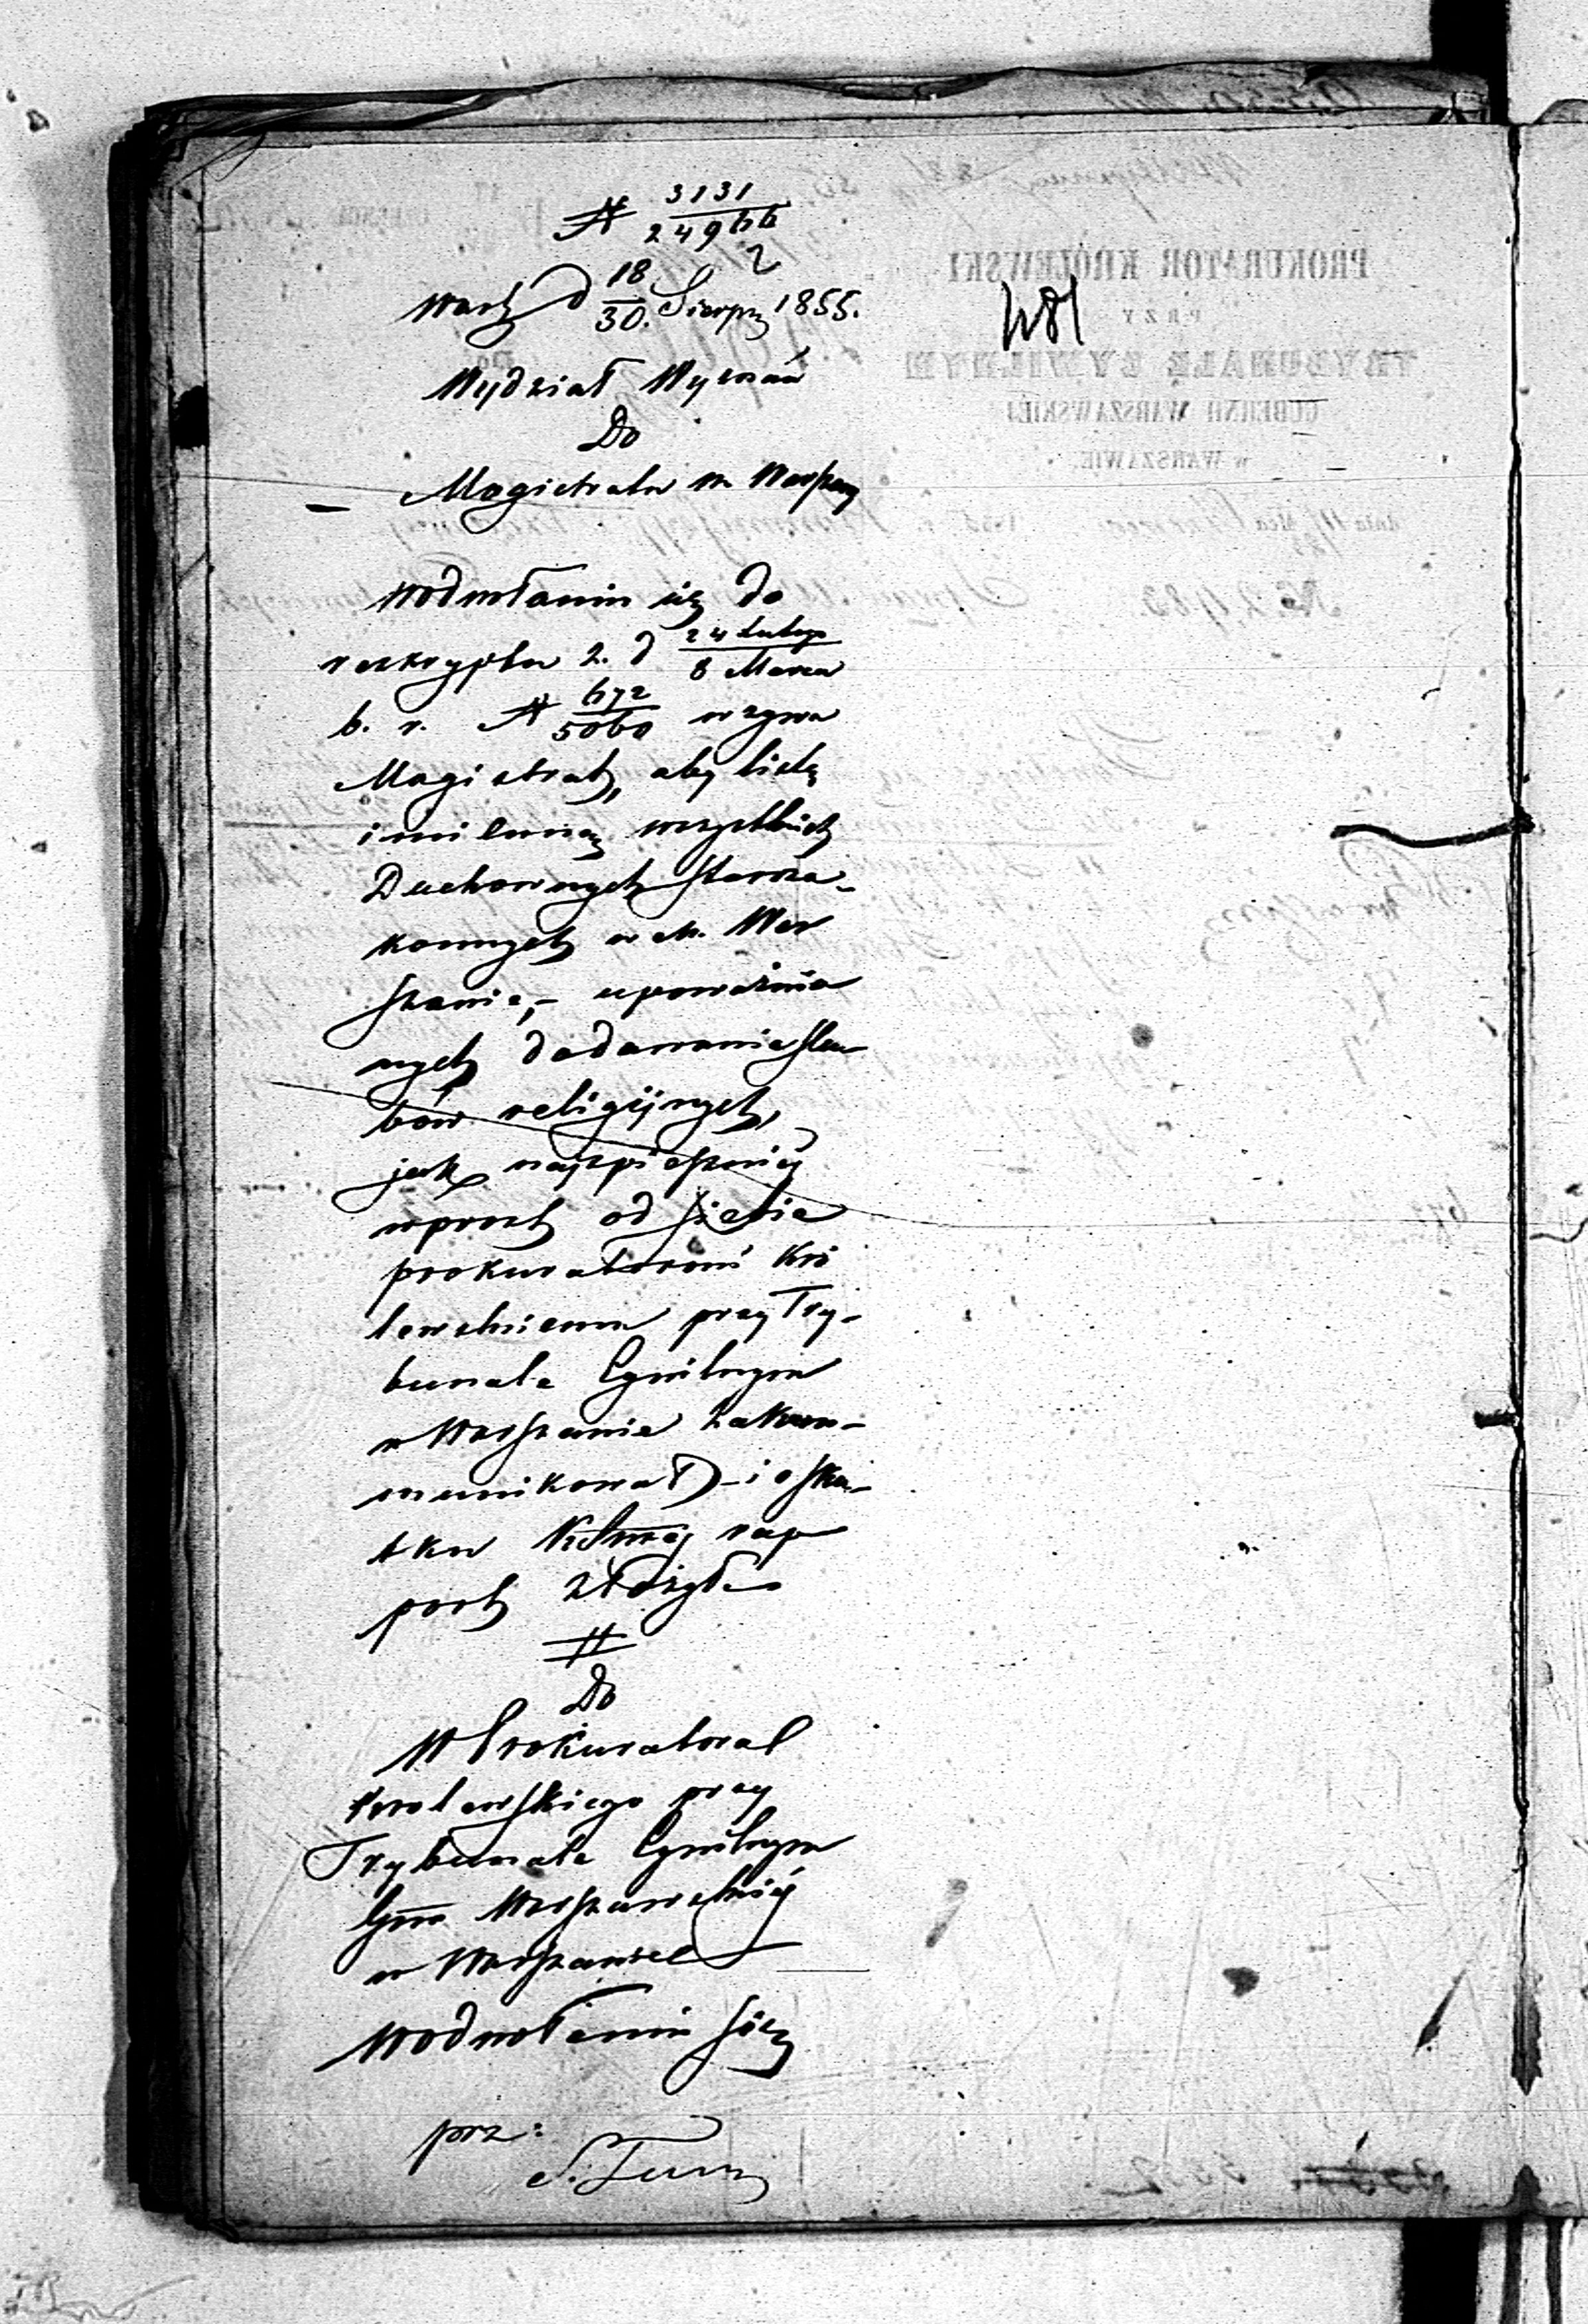 N 3131/24966
2
Warsz d 18/30. Sierpn 1855.
WRI
Wydział Wyznań
Do
Magistratu m Warszawy
W odwołaniu się do
reskryptu z. d 24 Lutego/8 Marca
b. r. N 672/5060 wzywa
Magistrat, aby listę
imienną wszystkich
Duchownych staroza-
konnych w m. War
szawie,- upoważnio
nych do dawania ślu
bów religijnych,
jak najspieszniej
wprost od siebie
prokuratorowi Kró
lewskiemu przy Try-
bunale Cywilnym
w Warszawie zakom-
munikował - i o sku-
tku rap
port złożył
Do
W Prokuratora
Królewskiego przy
Trybunale Cywilnym
Gnii Warszawskiej
w Warszawie
W odwołaniu się
prz:
PROKURATOR KRÓLEWSKI
PRZY
TRYBUNALE CYWILNYM
GUBERNII WARSZAWSKIEJ
w WARSZAWIE.